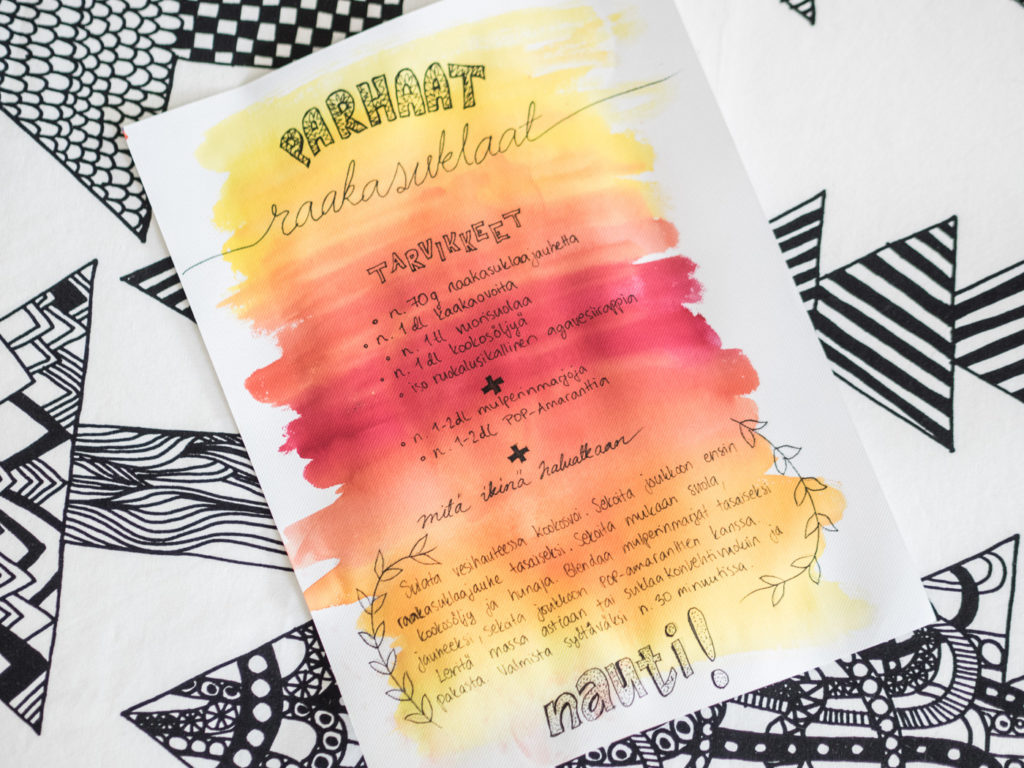 PARHAAT
raakasuklaat
TARVIKKEET
• n. 70g raakasuklaajauhetta
• n. 1 dl kaakaovoita
• n. 1 tl vuorisuolaa
• n. 1 dl kookosöljyä
• iso ruokalusikallinen agavesiirappia
+
• n. 1-2dl mulperinmarjoja
• n. 1-2dl POP-Amaranttia
+
mitä ikinä haluatkaan
Sulata vesihauteessa kookosvoi. Sekoita joukkoon ensin
raakasuklaajauhe tasaiseksi. Sekoita mukaan suola,
kookosöljy ja hunaja. Blendaa mulperinmarjat tasaiseksi
jauheeksi, sekaita joukkoon POP-amaranthin kanssa.
Levitä massa astiaan tai suklaakonvehtimuokiin ja
pakasta. Valmista syötäväksi n. 30 minuutissa.
nauti!